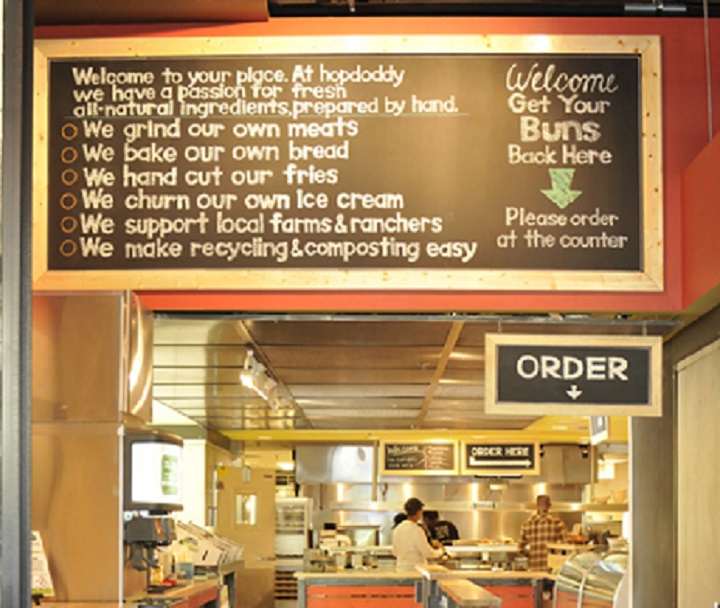 Welcome to your place. At hopdoddy
we have a passion for fresh
all-natural ingredients, prepared by hand.
We grind our own meats
We bake our own bread
We hand cut our fries
We churn our own ice cream
We support local farms & ranchers
We make recycling & composting easy
Welcome
Get Your
Buns
Back Here
Please order
at the counter
ORDER
Welcome
ORDER HERE